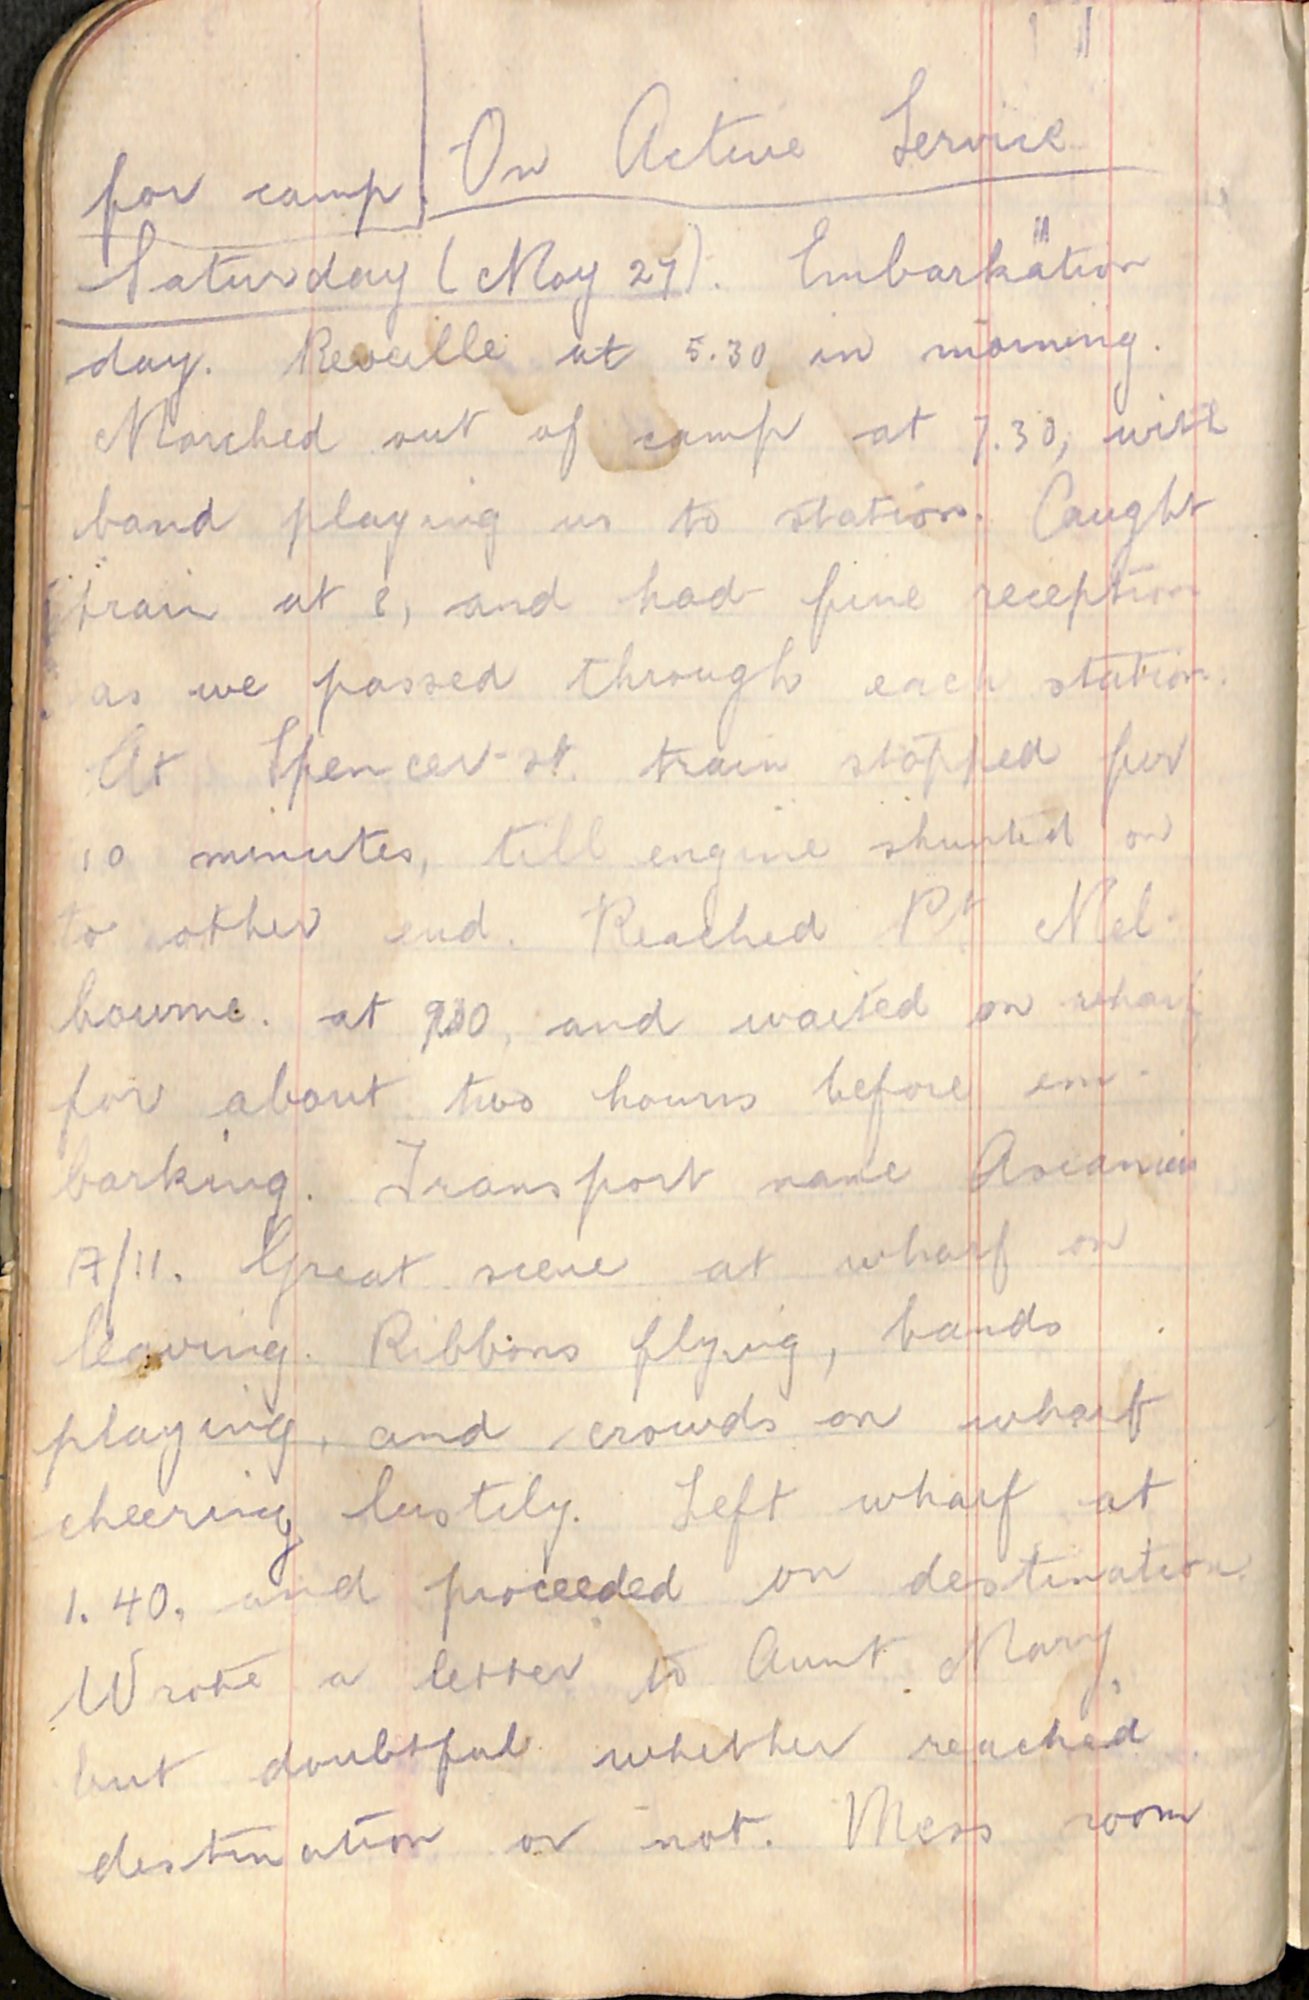 for camp. On Active Service
Saturday (May 27). Embarkation
day. Reveille at 5.30 in morning.
Marched out of camp at 7.30, with
band playing us to station. Caught
train at 8, and had fine reception
as we passed through each station.
At Spencer-st. train stopped for
10 minutes, till engine shunted on
to other end. Reached Pt. Mel-
bourne. at 9.30, and waited on wharf
for about two hours before em-
barking. Transport name Ascanius
A/11. Great scene at wharf on
leaving. Ribbons flying, bands
playing, and crowds on wharf
cheering lustily. Left wharf at
1.40, and proceeded on destination.
Wrote a letter to Aunt Mary,
but doubtful whether reached
destination or not. Mess room